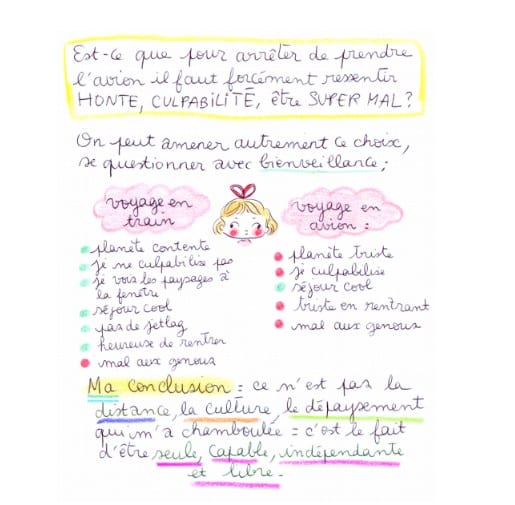 Est-ce que pour arrêter de prendre
l'avion il faut forcément ressentir
HONTE, CULPABILITÉ, être SUPER MAL ?
On peut amener autrement ce choix,
se questionner avec bienveillance ;
voyage en
train
planète contente
je ne culpabilise pas
je vois les paysages à
la fenêtre
séjour cool
pas de jetlag
heureuse de rentrer
mal aux genoux
voyage en
avion :
planète triste
je culpabilise
séjour cool
triste en rentrant
mal aux genoux
Ma conclusion : ce n'est pas la
distance, la culture, le dépaysement
qui m'a chamboulée : c'est le fait
d'être seule, capable, indépendante
et libre.